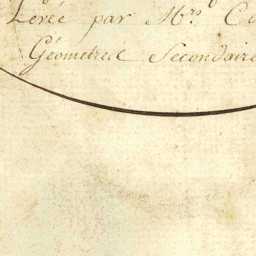 Levée par Mrs. C
Géometres Secondaire